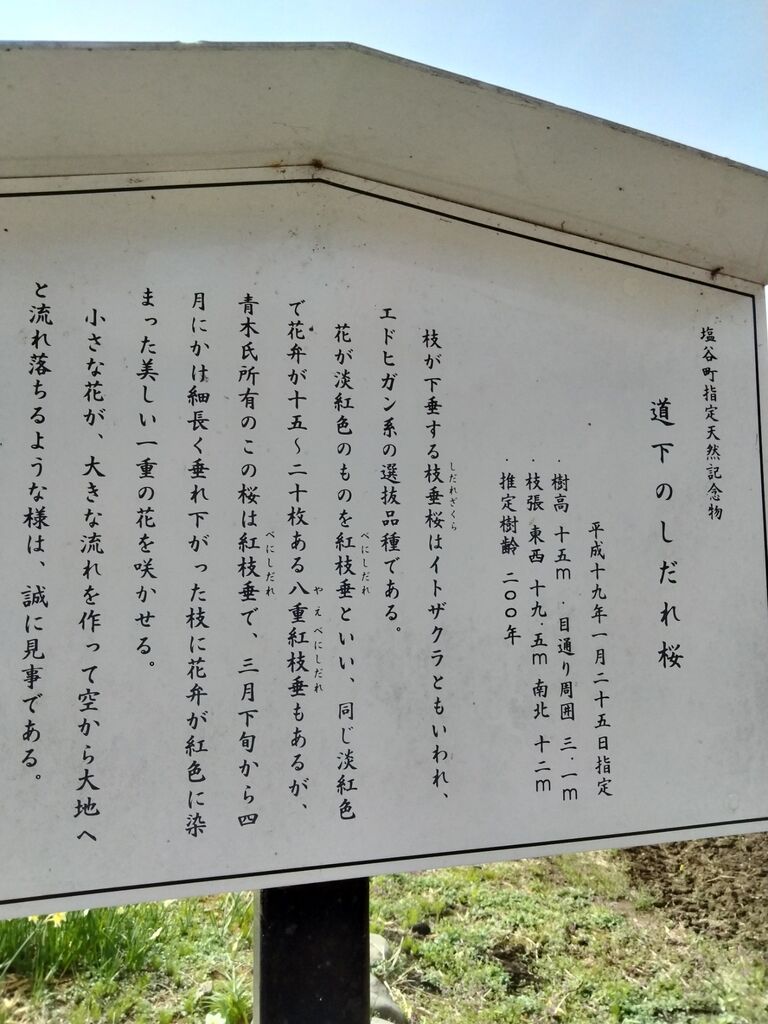 塩谷町指定天然記念物
道下のしだれ桜
平成十九年一月二十五日指定
・樹高 十五m ・目通り周囲 三.一m
・枝張 東西 十九.五m 南北 十二m
・推定樹齢 二〇〇年
枝が下垂する枝垂桜はイトザクラともいわれ、
しだれざくら
エドヒガン系の選抜品種である。
花が淡紅色のものを紅枝垂といい、同じ淡紅色
べにしだれ
で花弁が十五～二十枚ある八重紅枝垂もあるが、
やえべにしだれ
青木氏所有のこの桜は紅枝垂で、三月下旬から四
べにしだれ
月にかけ細長く垂れ下がった枝に花弁が紅色に染
まった美しい一重の花を咲かせる。
小さな花が、大きな流れを作って空から大地へ
と流れ落ちるような様は、誠に見事である。